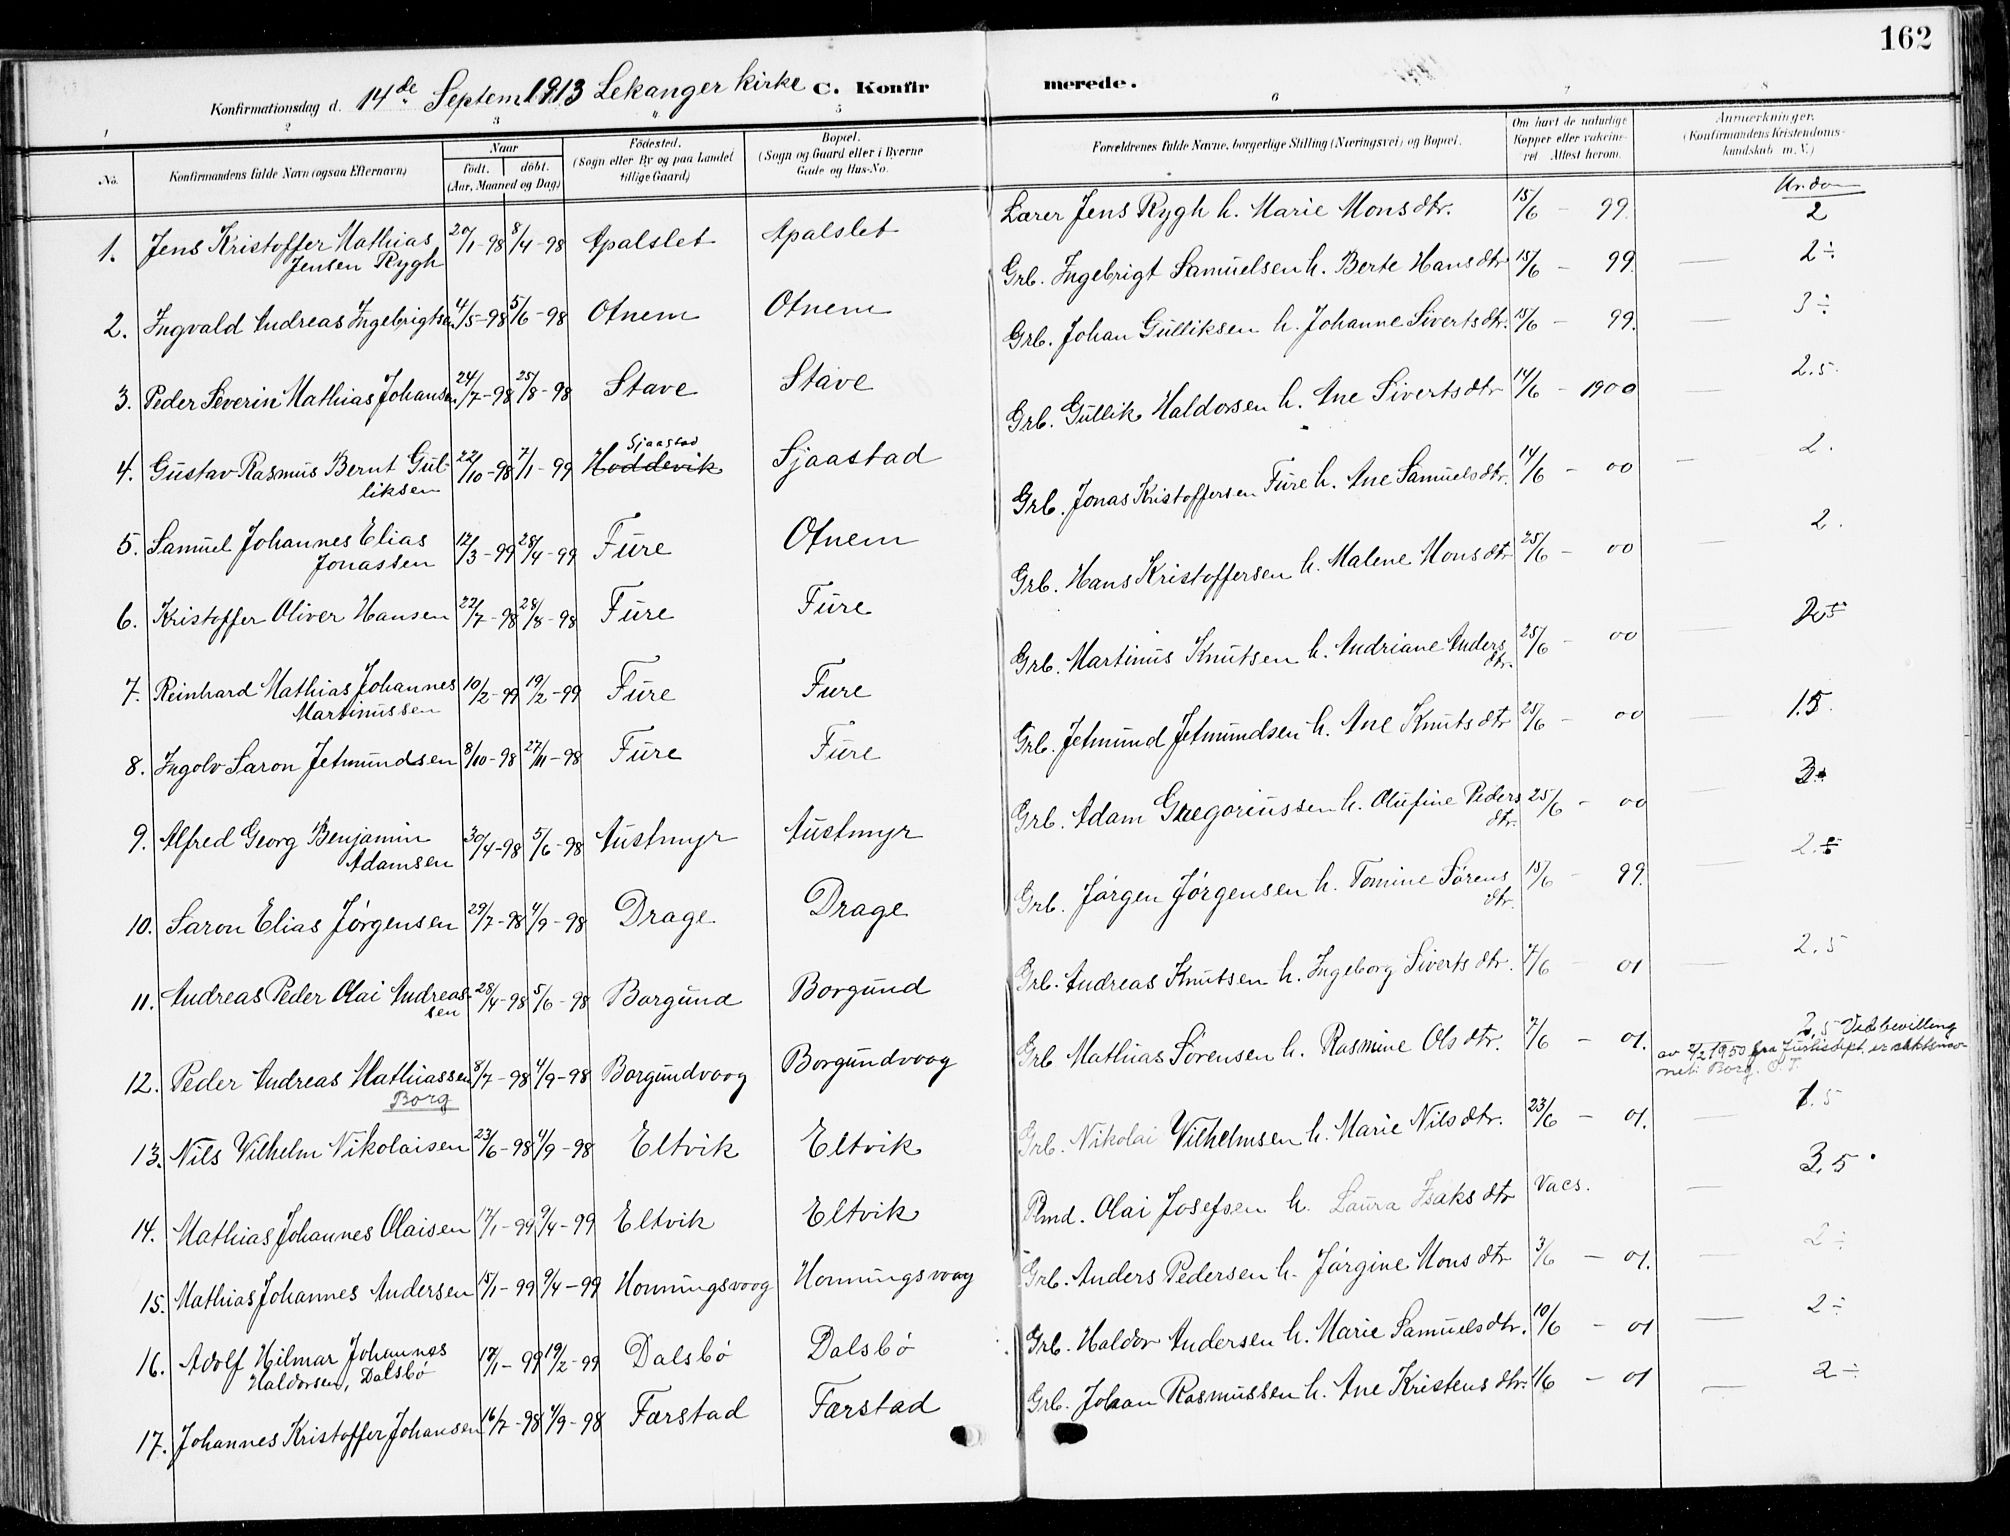 162
Konfirmationsdag d. 14de Septem 1913 Lekanger kirke C. Konfirmerede.
1 2 3 4 5 6 7 8
No. Konfirmandens fulde Navn (ogsaa Efternavn) Naar født. døbt. (Aar, Maaned og Dag) Fødested. (Sogn eller By og paa Landet tillige Gaard) Bopæl. (Sogn og Gaard eller i Byerne Gade og Hus-No. Forældrenes fulde Navne, borgerlige Stilling (Næringsvei) og Bopæl. Om havt de naturlige Kopper eller vakcineret Attest herom. Anmerkninger. (Konfirmandens Kristendomskundskab m. V.)
1. Jens Kristoffer Mathias Jensen Rygh 20/1-98 8/4-98 Apalslet Apalslet Lærer Jens Rygh h. Marie Monsdtr. 15/6 - 99. Kr.dom 2
2. Ingvald Andreas Ingebrigtsen 4/5-98 5/6-98 Otnem Otnem Grb. Ingebrigt Samuelsen h. Berte Hansdtr 15/6 - 99. — 2÷
3. Peder Severin Mathias Johansen 24/7-98 25/8-98 Stave Stave Grb. Johan Gulliksen h. Johanne Sivertsdtr. 15/6 - 99. — 3÷
4. Gustav Rasmus Bernt Gulliksen 22/10-98 7/1-99 Hoddevik Sjaastad Sjaastad Grb. Gullik Haldorsen h. Ane Sivertsdtr 14/6 - 1900 — 2.5.
5. Samuel Johannes Elias Jonassen 12/3-99 28/4-99 Fure Otnem Grb. Jonas Kristoffersen Fure h. Ane Samuelsdtr. 14/6 - 00 — 2.
6. Kristoffer Oliver Hansen 22/7-98 28/8-98 Fure Fure Grb. Hans Kristoffersen h. Malene Monsdtr 25/6 - 00 — 2.
7. Reinhard Mathias Johannes Martinussen 10/2-99 19/2-99 Fure Fure Grb. Martinus Knutsen h. Andriane Andersdtr. 25/6 - 00 —
8. Ingolv Saron Jetmundsen 8/10-98 27/11-98 Fure Fure Grb. Jetmund Jetmundsen h. Ane Knutsdtr 25/6 - 00 — 1.5.
9. Alfred Georg Benjamin Adamsen 30/4-98 5/6-98 Austmyr Austmyr Grb. Adam Gregoriussen h. Olufine Pedersdtr. 25/6 - 00 — 3.
10. Saron Elias Jørgensen 29/7-98 4/9-98 Drage Drage Grb. Jørgen Jørgensen h. Tomine Sørensdtr. 15/6 - 99. — 2.
11. Andreas Peder Olai Andreassen 28/4-98 5/6-98 Borgund Borgund Grb. Andreas Knutsen h. Ingeborg Sivertsdtr. 7/6 - 01 — 2.5
12. Peder Andreas Mathiassen Borg 8/7-98 4/9-98 Borgundvaag Borgundvaag Grb Mathias Sørensen h. Rasmine Olsdtr. 7/6 - 01. 2.5 Ved bevilling av 7/2 1950 fra Justisdept. er slektsnavnet: Borg. O.T.
13. Nils Vilhelm Nikolaisen 23/6-98 4/9-98 Eltvik Eltvik Grb. Nikolai Vilhelmsen h. Marie Nilsdtr. 23/6 - 01. — 1.5
14. Mathias Johannes Olaisen 17/1-99 9/4-99 Eltvik Eltvik Plmd. Olai Josefsen h. Laura Isaksdtr Vacs. — 3.5
15. Mathias Johannes Andersen 15/1-99 9/4-99 Honningsvoog Honningsvoog Grb. Anders Pedersen h. Jørgine Monsdtr 3/6 - 01. — 2÷
16. Adolf Hilmar Johannes Haldorsen, Dalsbø 17/1-99 19/2-99 Dalsbø Dalsbø Grb. Haldor Andersen h. Marie Samuelsdtr. 10/6 - 01 — 2÷
17. Johannes Kristoffer Johansen 16/7-98 4/9-98 Færstad Færstad Grb. Johan Rasmussen h. Ane Kristensdtr. 1/6 - 01 — 2÷